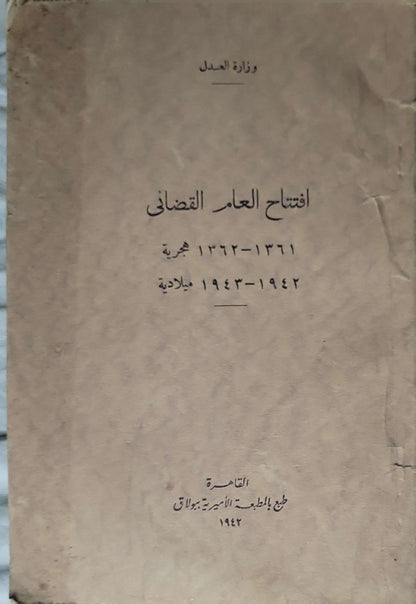 وزارة العدل
افتتاح العام القضائى
١٣٦١-١٣٦٢ هجرية
١٩٤٢-١٩٤٣ ميلادية
القاهرة
طبع بالمطبعة الأميرية ببولاق
١٩٤٢